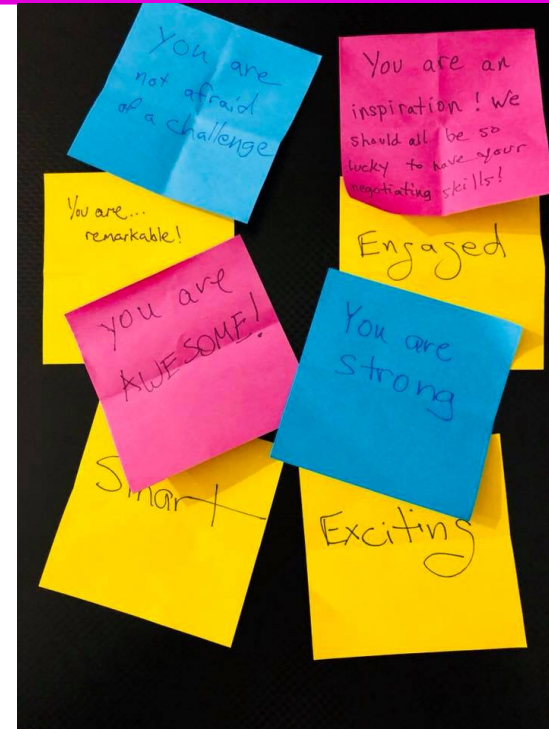 You are
not afraid
of a challenge
You are an
inspiration! We
should all be so
lucky to have your
negotiating skills!
You are...
remarkable!
Engaged
you are
AWESOME!
You are
strong
Smart
Exciting